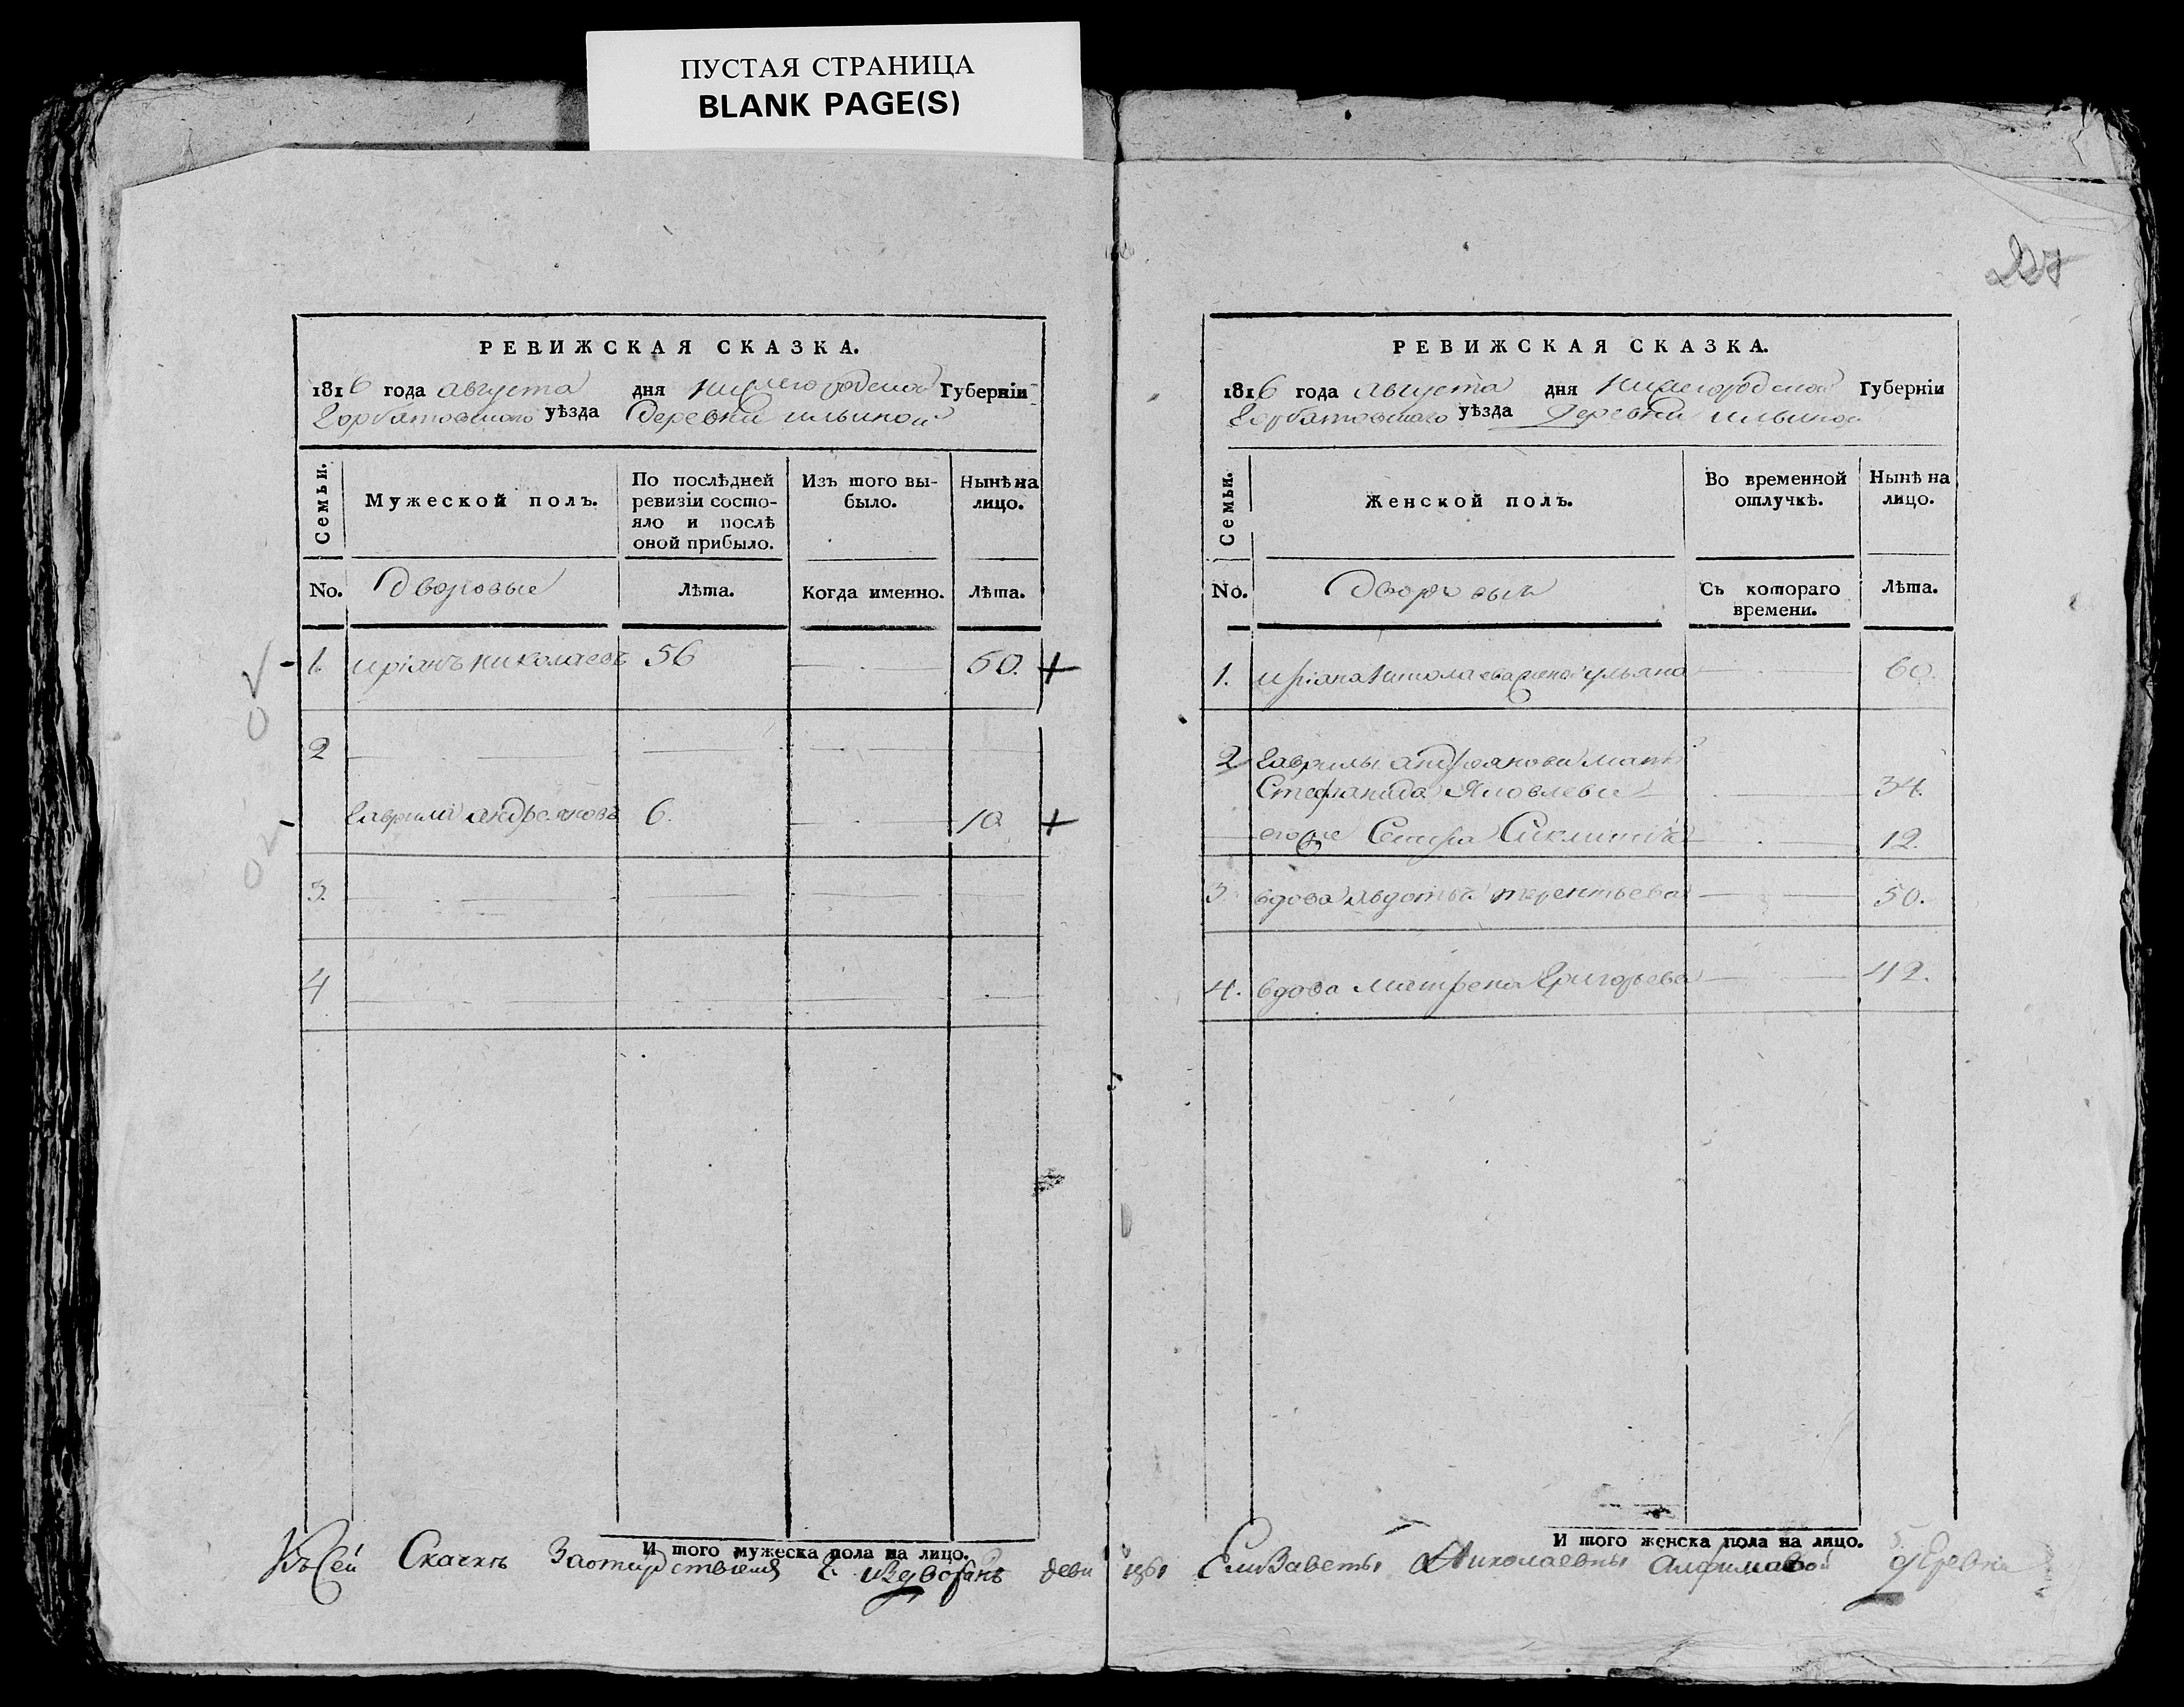 ПУСТАЯ СТРАНИЦА
BLANK PAGE(S)
РЕВИЖСКАЯ СКАЗКА.
1816 года августа дня нижегородской Губерніи
Горбатовского уѣзда деревни ильиной
Семьи.
Мужеской полъ.
По послѣдней ревизіи состо-
яло и послѣ
оной прибыло.
Изъ того вы-
было.
Нынѣ на
лицо.
No.
Дворовые
Лѣта.
Когда именно.
Лѣта.
1. николаевъ 56 60.
2
Гаврила андреяновъ 6. 10
3.
4
И того мужеска пола на лицо.
РЕВИЖСКАЯ СКАЗКА.
1816 года августа дня нижегородской Губерніи
Горбатовского уѣзда деревни ильиной
Семьи.
Женской полъ.
Во временной
отлучкѣ.
Нынѣ на
лицо.
No.
Дворовыя
Съ котораго
времени.
Лѣта.
1. жена ульяна 60.
2 Гаврилы андреянова мать
Стефанида Яковлева 34.
его же Сестра 12.
3. вдова авдотья терентьева 50.
4. вдова матрена Григорьева 42.
И того женска пола на лицо.
Къ Сей Скаске девицы Елизаветы Николаевны Алфимовой